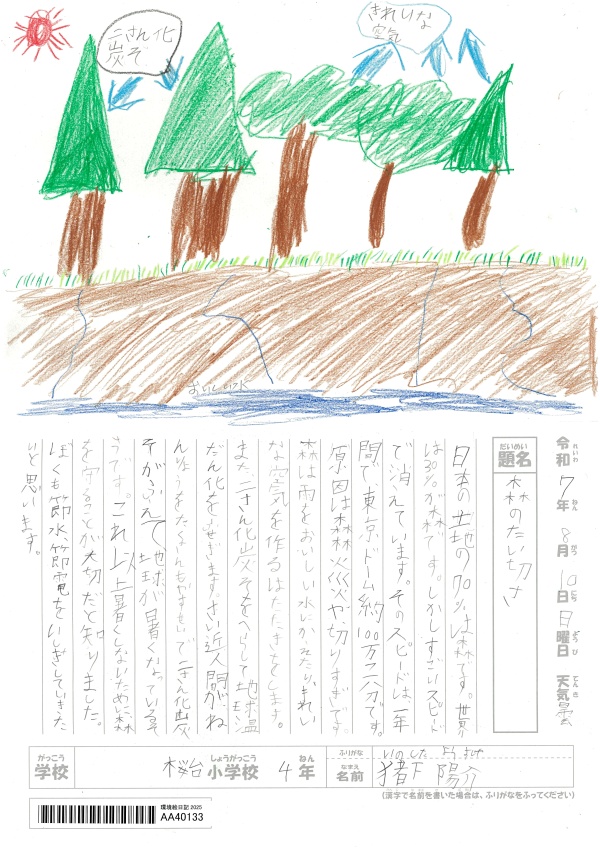 二さん化
炭そ
きれいな
空気
おいしい水
令和7年8月10日日曜日 天気 曇
れいわ ねん がつ にち よう び てん き
だいめい
題名 森のたい切さ
日本の土地の70%は森です。世界
は30%が森です。しかしすごいスピード
で消えています。そのスピードは、一年
間で、東京ドーム約100万こ分です。
原因は森林火災や、切りすぎです。
森は雨をおいしい水にかえたり、きれい
な空気を作るはたらきをします。
また二さん化炭そをへらして地球温
だん化をふせぎます。さい近人間がね
んりょうをたくさんもやすせいで二さん化炭
そがふえて地球が暑くなっているそ
うです。これ以上暑くしないために森
を守ることが大切だと知りました。
ぼくも節水、節電をいしきしていきた
いと思います。
がっこう しょうがっこう ねん
学校 桜台小学校 4年
ふりがな いのした ようすけ
なまえ
名前 猪下 陽介
(漢字で名前を書いた場合は、ふりがなをふってください)
環境絵日記 2025
AA40133